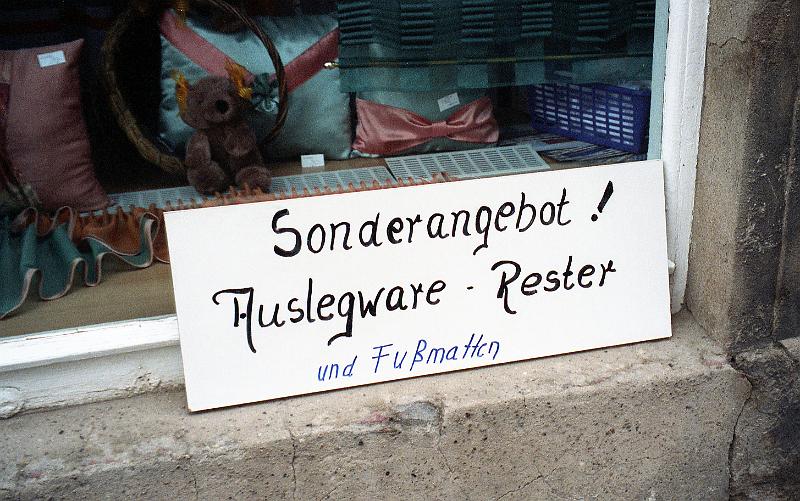 Sonderangebot !
Auslegware - Rester
und Fußmatten